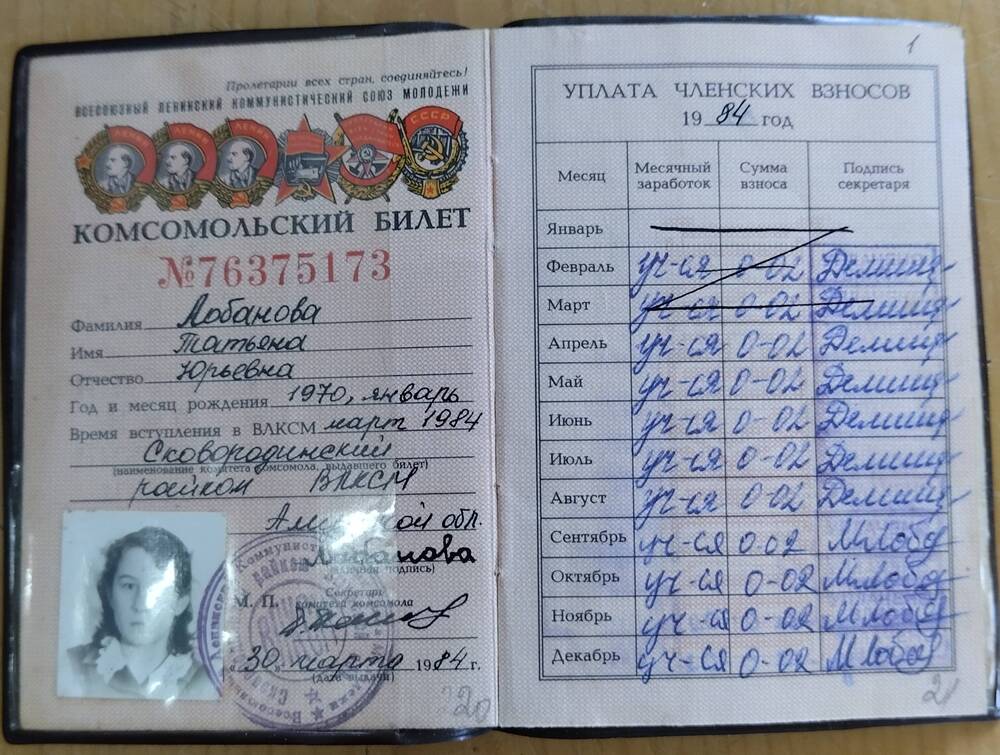 Пролетарии всех стран, соединяйтесь!
ВСЕСОЮЗНЫЙ ЛЕНИНСКИЙ КОММУНИСТИЧЕСКИЙ СОЮЗ МОЛОДЕЖИ
ЛЕНИН ЛЕНИН ЛЕНИН СССР
КОМСОМОЛЬСКИЙ БИЛЕТ
№76375173
Фамилия Лобанова
Имя Татьяна
Отчество Юрьевна
Год и месяц рождения 1970, январь
Время вступления в ВЛКСМ март 1984
Сковородинский
(наименование комитета комсомола, выдавшего билет)
райком ВЛКСМ
Амурской обл.
Лобанова
(личная подпись)
М. П. Секретарь
комитета комсомола
"30" марта 1984 г.
(дата выдачи)
220
1
УПЛАТА ЧЛЕНСКИХ ВЗНОСОВ
1984 год
Месяц Месячный заработок Сумма взноса Подпись секретаря
Январь
Февраль уч-ся 0-02
Март уч-ся 0-02
Апрель уч-ся 0-02
Май уч-ся 0-02
Июнь уч-ся 0-02
Июль уч-ся 0-02
Август уч-ся 0-02
Сентябрь уч-ся 0-02
Октябрь уч-ся 0-02
Ноябрь уч-ся 0-02
Декабрь уч-ся 0-02